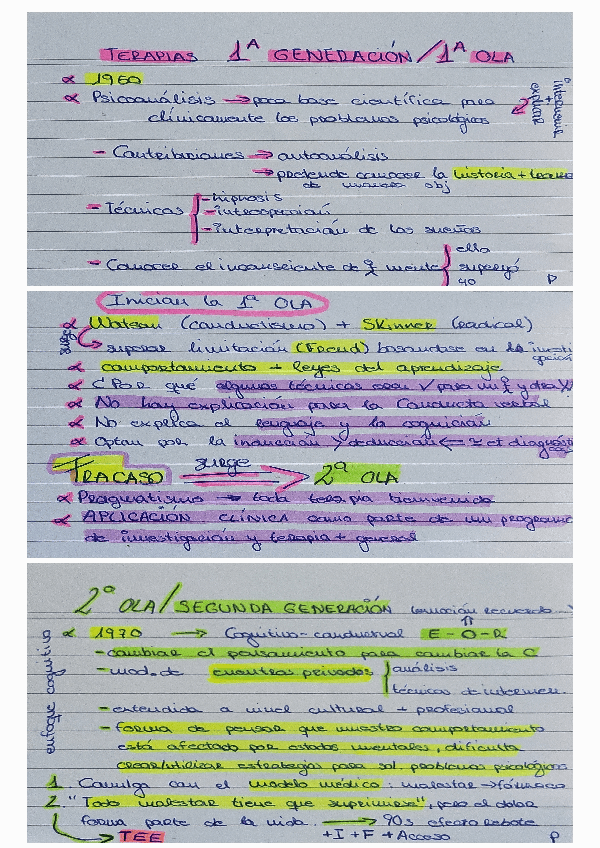 TERAPIAS 1ª GENERACIÓN / 1ª OLA
∝ 1960
∝ Psicoanálisis → poca base científica para intervenir + explicar
clínicamente los problemas psicológicos
- Contribuciones → autoanálisis
→ pretende conocer la historia +
de manera obj
- Técnicas - hipnosis
- introspección
- interpretación de los sueños
- Conocer el inconsciente de mente ello
superyó
yo
P
Inician la 1ª OLA
∝ Watson (conductismo) + Skinner (radical)
surge superar limitación (Freud) basandose en la investigación
∝ comportamiento + leyes del aprendizaje
∝ ¿Por qué algunas técnicas sean V para un y otra X?
∝ No hay explicación para la Conducta verbal
∝ No explica el lenguaje y la cognición
∝ Optan por la inducción > deducción ← ≠ et diagnóstica
FRACASO surge → 2ª OLA
∝ Pragmatismo → toda terapia bienvenida
∝ APLICACIÓN CLÍNICA como parte de un programa
de investigación y terapia + general
2ª OLA / SEGUNDA GENERACIÓN
∝ 1970 → Cognitivo-conductual E-O-R
enfoque cognitivo
- cambiar el pensamiento para cambiar la C
- mod. de eventos privados análisis
técnicas de interven.
- extendida a nivel cultural + profesional
- forma de pensar que nuestro comportamiento
está afectado por estados mentales, dificulta
crear/utilizar estrategias para sol problemas psicológicos
1. Comulga con el modelo médico: malestar → fármaco
2. "Todo malestar tiene que suprimirse", pero el dolor
forma parte de la vida. → 90s efecto rebote
→ TEE +I + F + Acceso
P